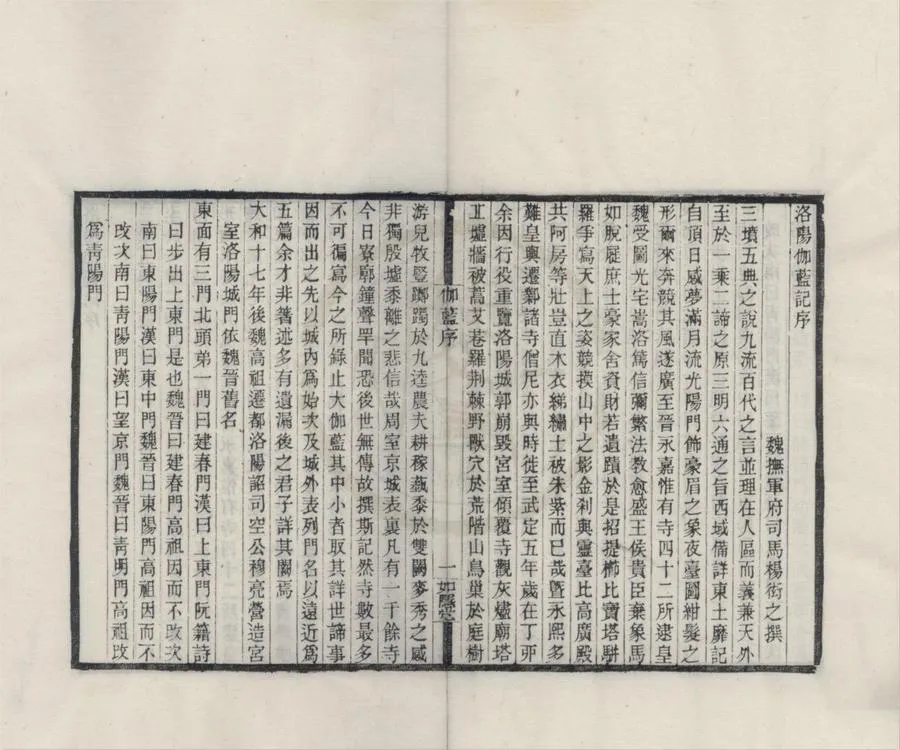 洛陽伽藍記序
魏撫軍府司馬楊衒之撰
三墳五典之說九流百代之言並理在人區而義兼天外
至於一乘二諦之原三明六通之旨西域備詳東土靡記
自頂日感夢滿月流光陽門飾豪眉之象夜臺圖紺髮之
形爾來奔競其風遂廣至晉永嘉惟有寺四十二所逮皇
魏受圖光宅嵩洛篤信彌繁法教愈盛王侯貴臣棄象馬
如脫屣庶士豪家舍資財若遺蹟於是招提櫛比寶塔駢
羅爭寫天上之姿競摸山中之影金剎與靈臺比高廣殿
共阿房等壯豈直木衣綈繡土被朱紫而已哉曁永熙多
難皇輿遷鄴諸寺僧尼亦與時徙至武定五年歲在丁丣
余因行役重覽洛陽城郭崩毀宮室傾覆寺觀灰燼廟塔
丘墟牆被蒿艾巷羅荆棘野獸穴於荒階山鳥巢於庭樹
伽藍序
一
如隱堂
游兒牧豎躑躅於九逵農夫耕稼蓺黍於雙闕麥秀之感
非獨殷墟黍離之悲信哉周室京城表裏凡有一千餘寺
今日寮廓鐘聲罕聞恐後世無傳故撰斯記然寺數最多
不可徧寫今之所錄止大伽藍其中小者取其詳世諦事
因而出之先以城內爲始次及城外表列門名以遠近爲
五篇余才非著述多有遺漏後之君子詳其闕焉
大和十七年後魏高祖遷都洛陽詔司空公穆亮營造宮
室洛陽城門依魏晉舊名
東面有三門北頭弟一門曰建春門漢曰上東門阮籍詩
曰步出上東門是也魏晉曰建春門高祖因而不改次
南曰東陽門漢曰東中門魏晉曰東陽門高祖因而不
改次南曰青陽門漢曰望京門魏晉曰青明門高祖改
爲青陽門